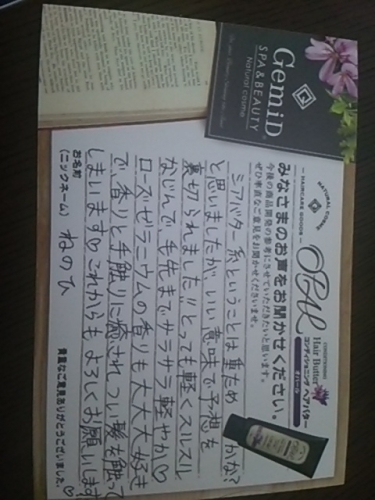 GemiD
SPA & BEAUTY
Natural cosme
NATURAL COSME
HAIRCARE GOODS
みなさまのお声をお聞かせください。
今後の商品開発の参考にさせていただきたいと思います。
ぜひ率直なご意見をお聞かせくださいませ。
OPAL
CONDITIONING
Hair Butter
コンディショニング ヘアバター
シアバター系ということは重ため かな?
と思いましたが、いい意味で予想を
裏切られました!!とっても軽くスルスル
なじんで、毛先までサラサラ軽やか♡
ローズゼラニウムの香りも大大大好き
で、香りと手触りに癒されつい髪を触って
しまいます♡これからもよろしくお願いします
お名前
(ニックネーム) ねのひ
貴重なご意見ありがとうございました。